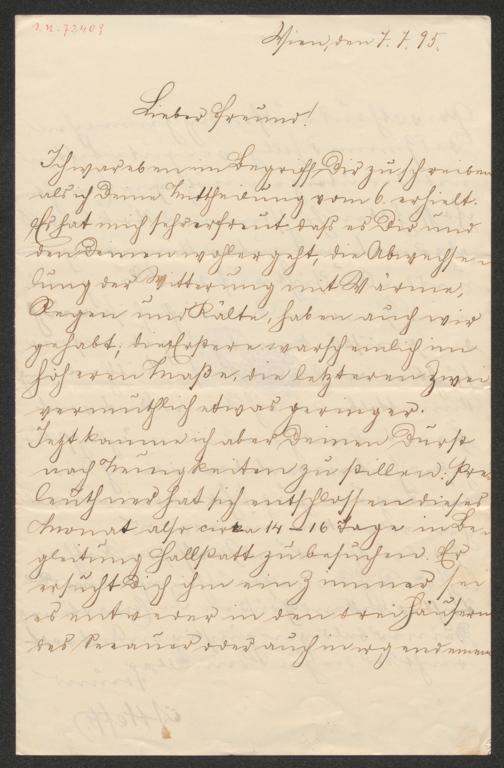 I.N. 72409
Wien, den 7. 7. 95.
Lieber Freund!
Ich war eben im Begriff, Dir zu schreiben
als ich Deine Mittheilung vom 6. erhielt.
Es hat mich sehr erfreut dass es Dir und
den Deinen wohl ergeht, die Abwechse-
lung der Witterung mit Wärme,
Regen und Kälte, haben auch wir
gehabt; die Erstere warscheinlich im
höheren Maße, die letzteren zwei
vermuthlich etwas geringer.
Jezt komme ich aber Deinen Durst
nach Neuigkeiten zu stillen: Pre-
leuthner hat sich entschlossen dieses
Monat also circa 14 – 16 Tage in Be-
gleitung Hallstatt zu besuchen. Er
ersucht Dich ihm ein Zimmer sei
es entweder in den drei Häusern
des Seeauer oder auch in irgend einem